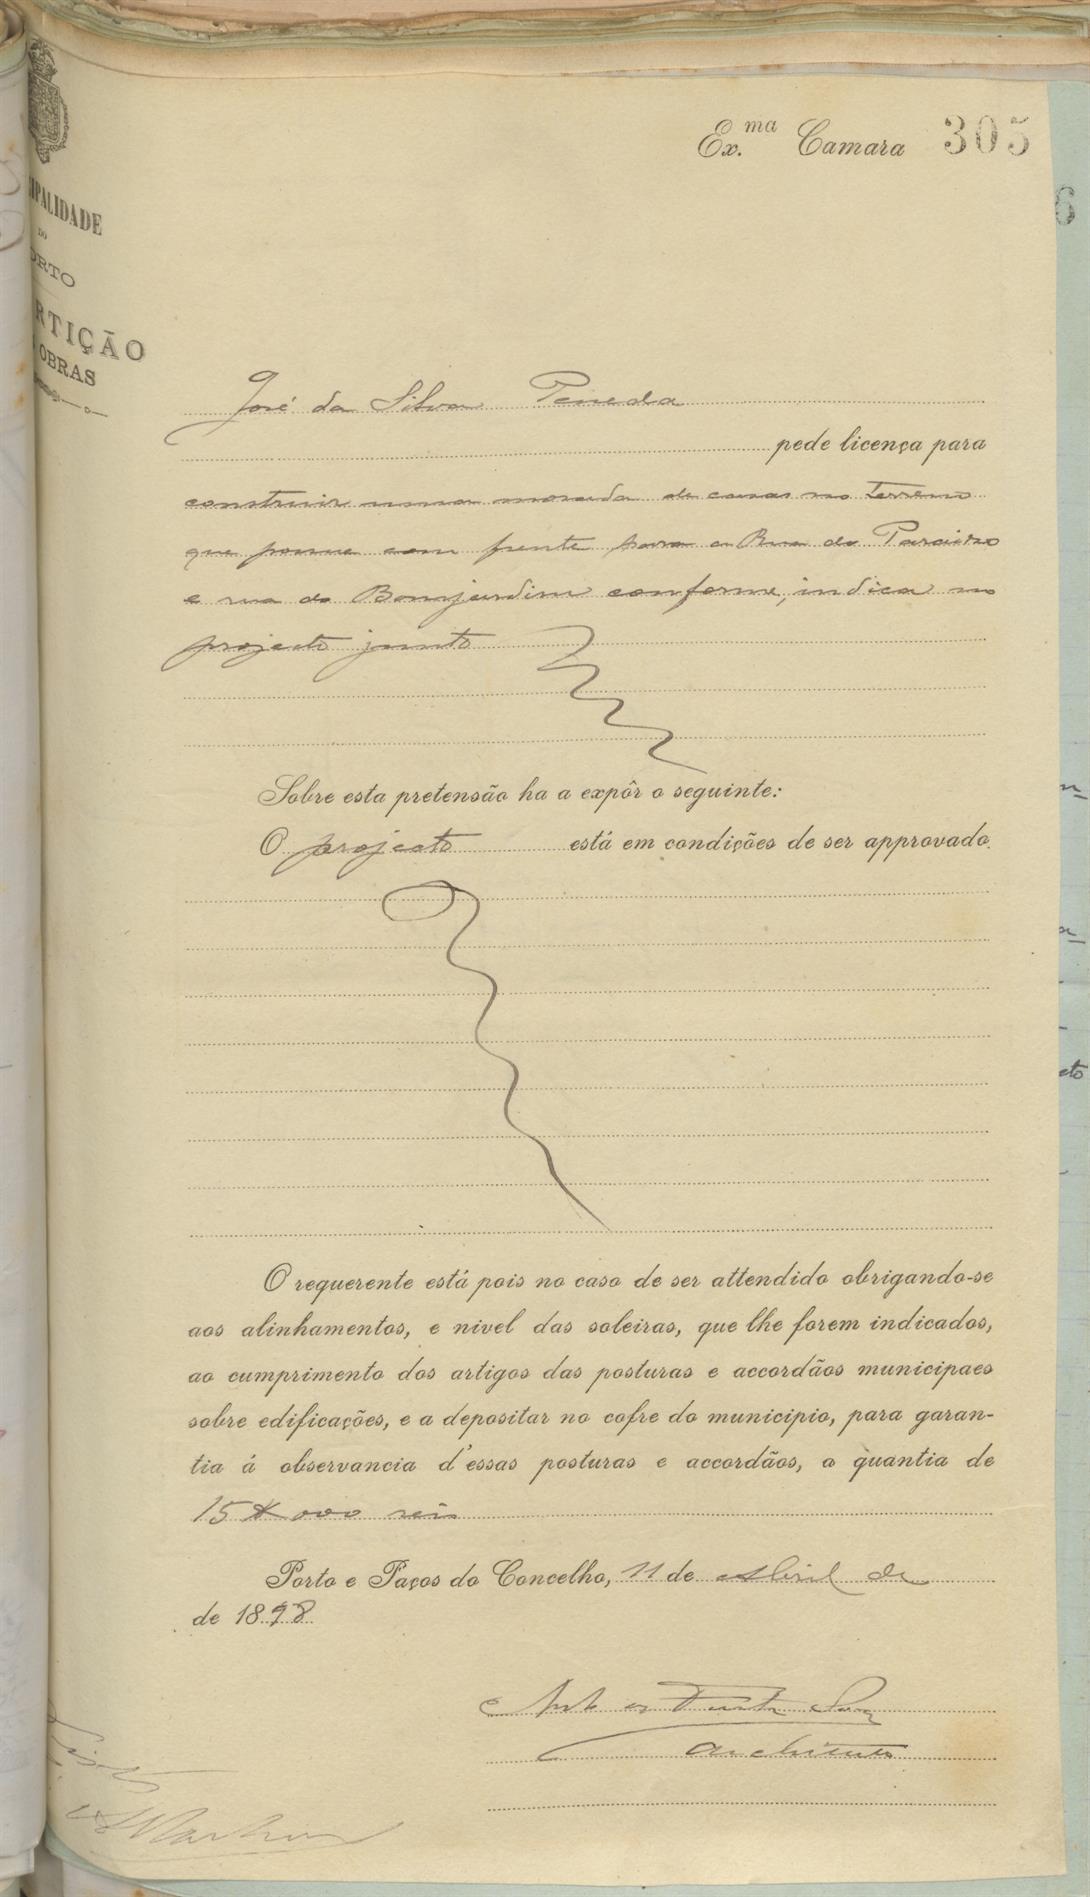 Ex.ma Camara 305
IPALIDADE
DO
ORTO
RTIÇÃO
OBRAS
José da Silva Peneda
pede licença para
construir uma morada de casas no terreno
que possue com frente para a Rua do Paraizo
e rua do Bomjardim conforme, indica no
projecto junto
Sobre esta pretensão ha a expôr o seguinte:
O projecto está em condições de ser approvado.
O requerente está pois no caso de ser attendido obrigando-se
aos alinhamentos, e nivel das soleiras, que lhe forem indicados,
ao cumprimento dos artigos das posturas e accordãos municipaes
sobre edificações, e a depositar no cofre do municipio, para garan-
tia á observancia d'essas posturas e accordãos, a quantia de
15$000 reis
Porto e Paços do Concelho, 11 de Abril de
de 1898
architecto